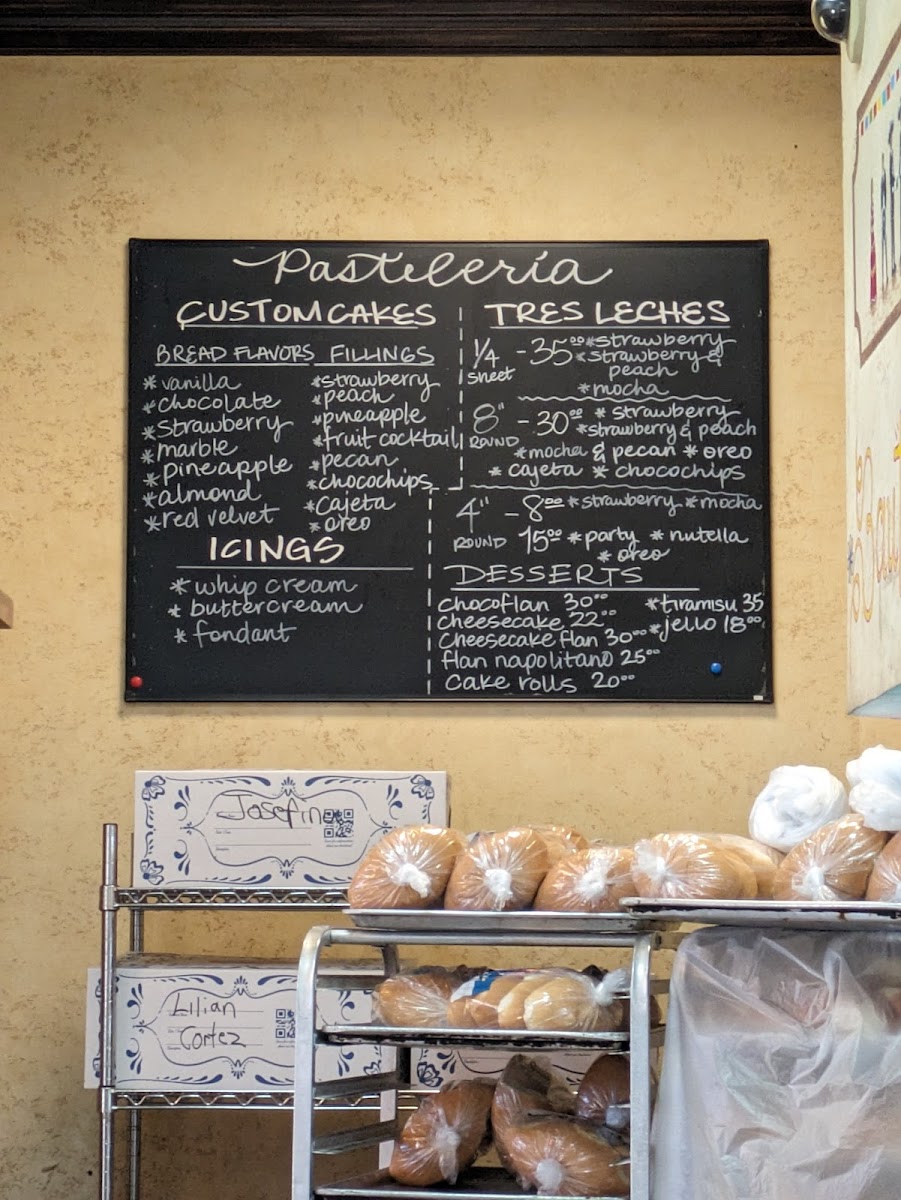 Pastelería
CUSTOM CAKES
BREAD FLAVORS
* vanilla
* chocolate
* strawberry
* marble
* pineapple
* almond
* red velvet
FILLINGS
* strawberry
* peach
* pineapple
* fruit cocktail
* pecan
* chocochips
* cajeta
* oreo
ICINGS
* whip cream
* buttercream
* fondant
TRES LECHES
1/4 sheet - 35.00 * strawberry
* strawberry &
peach
* mocha
8" ROUND - 30.00 * strawberry
* strawberry & peach
* mocha & pecan * oreo
* cajeta * chocochips
4" ROUND - 8.00 * strawberry * mocha
15.00 * party * nutella
* oreo
DESSERTS
chocoflan 30.00
cheesecake 22.00
cheesecake flan 30.00
flan napolitano 25.00
cake rolls 20.00
* tiramisu 35
* jello 18.00
Josefin
Lilian
Cortez